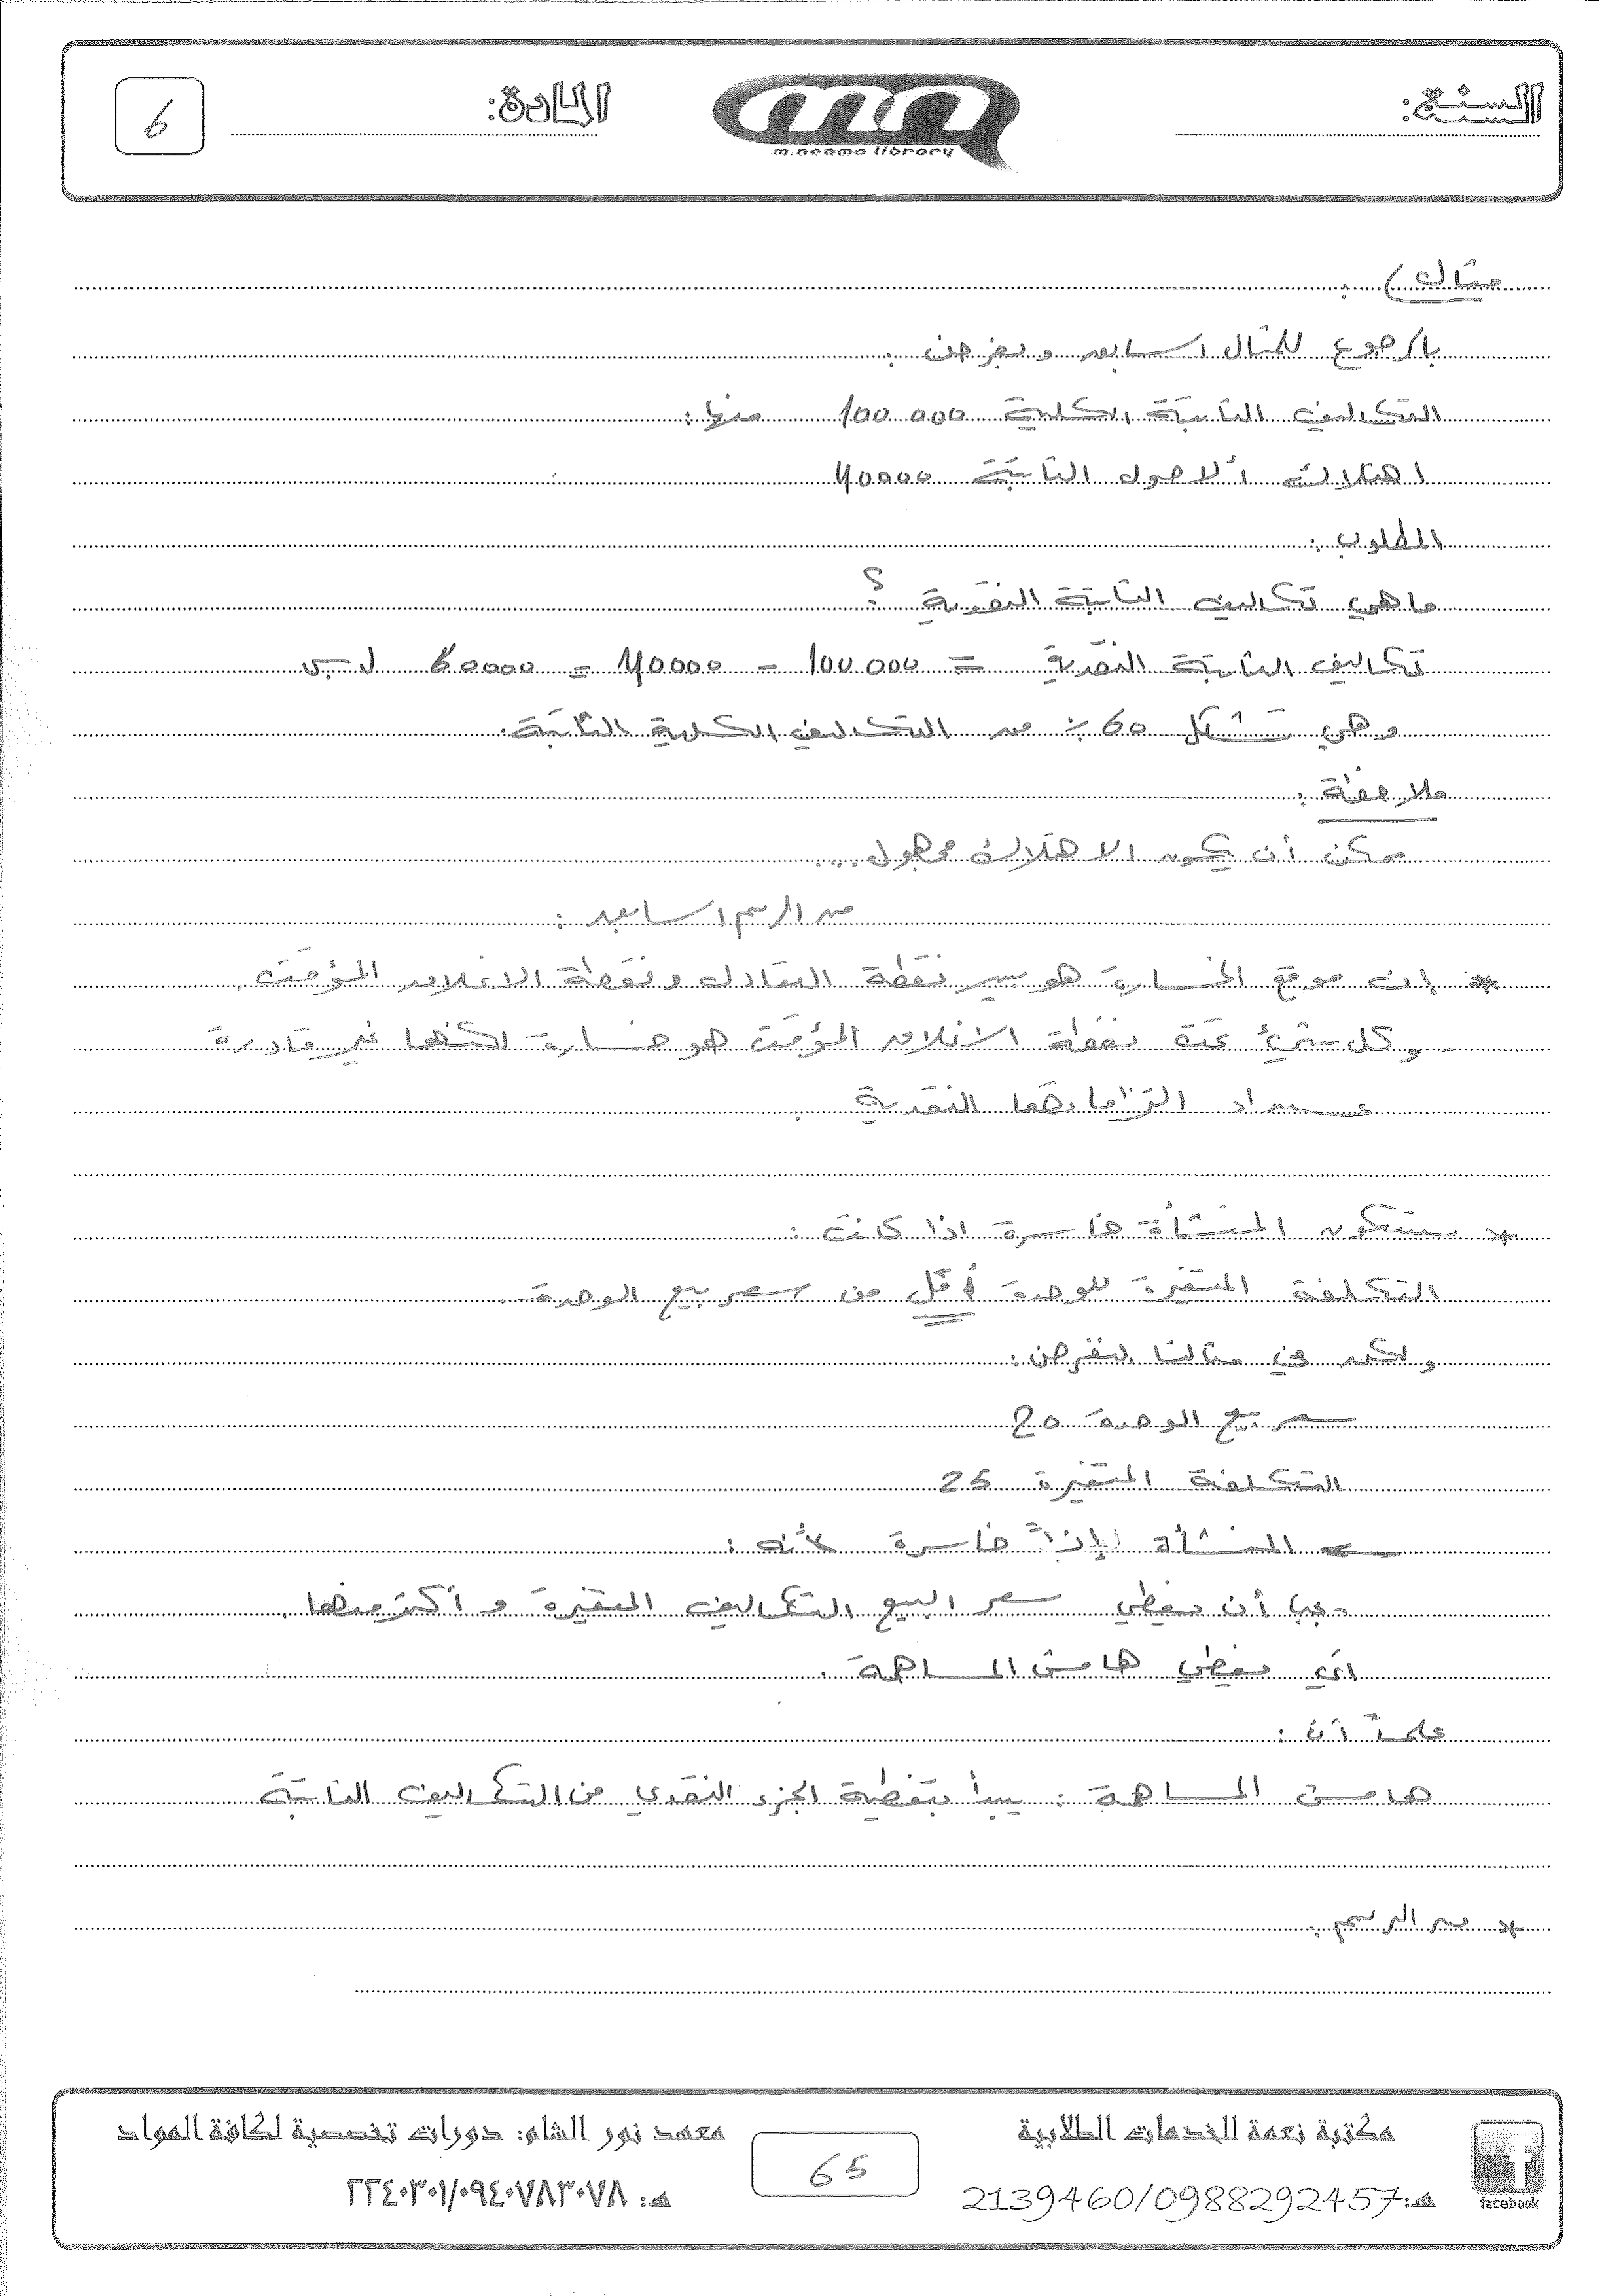 السنة:
m.neama library
المادة:
6
مثال) :
بالرجوع للمثال السابق وبفرض :
التكاليف الثابتة الكلية 100 000 منها :
اهتلاك الأصول الثابتة 40000
المطلوب :
ماهي تكاليف الثابتة النقدية ؟
تكاليف الثابتة النقدية = 100 000 - 40000 = 60000 ل.س
وهي تشكل 60 % من التكاليف الكلية الثابتة .
ملاحظة :
ممكن أن يكون الاهتلاك مجهول ....
من الرسم السابق :
* إن موقع الخسارة هو بين نقطة التعادل ونقطة الاغلاق المؤقت .
وكل شيء تحت نقطة الاغلاق المؤقت هو خسارة لكنها غير قادرة
سداد التزاماتها النقدية .
* ستكون المنشأة خاسرة اذا كانت :
التكلفة المتغيرة للوحدة أقل من سعر بيع الوحدة .
ولكن في مثالنا لنفرض :
سعر بيع الوحدة 20
التكلفة المتغيرة 25
← المنشأة إذاً خاسرة لأنه :
يجب أن يغطي سعر البيع التكاليف المتغيرة وأكثر منها .
اي يغطي هامش المساهمة .
علماً أن :
هامش المساهمة : يبدأ بتغطية الجزء النقدي من التكاليف الثابتة
* من الرسم :
facebook
مكتبة نعمة للخدمات الطلابية
هـ: 2139460/0988292457
65
معهد نور الشام: دورات تخصصية لكافة المواد
هـ: ٢٢٤٠٣٠١/٠٩٤٠٧٨٣٠٧٨